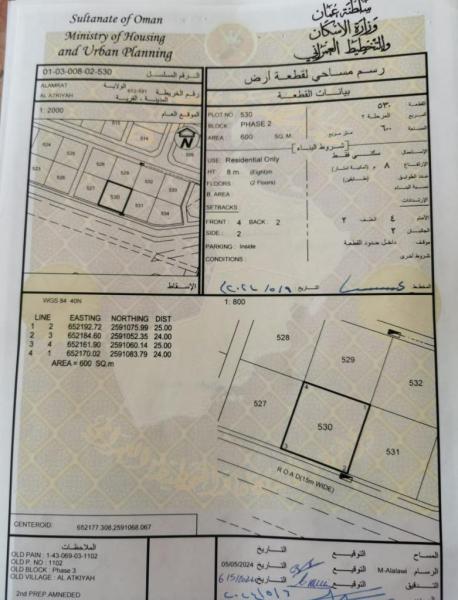 Sultanate of Oman
Ministry of Housing
and Urban Planning
سلطنة عُمان
وزارة الإسكان
والتخطيط العمراني
01-03-008-02-530
الرقم المسلسل
رسم مساحي لقطعة أرض
ALAMRAT
الولاية
AL ATKIYAH
رقم الخريطة
المدينة - القرية
بيانات القطعة
1: 2000
الموقع العام
PLOT NO
530
٥٣٠
القطعة
BLOCK
PHASE 2
المرحلة ٢
المربع
AREA
600
SQ. M.
متر مربع
٦٠٠
المساحة
شروط البناء
USE:
Residential Only
سكني فقط
الإستعمال
HT
8 m
(Eight)m
٨ م
الإرتفاع
FLOORS
(2 Floors)
(طابقين)
عدد الطوابق
B. AREA
نسبة البناء
SETBACKS
الإرتدادات
FRONT :
4
BACK :
2
الأمام
٤
الخلف
٢
SIDE :
2
الجانبان
٢
PARKING :
Inside
داخل حدود القطعة
موقف
CONDITIONS
شروط أخرى
التاريخ
المخطط
515
514
529
528
532
527
530
531
533
534
N
الإسقاط
WGS 84 40N
1: 800
LINE EASTING NORTHING DIST
1 2 652192.72 2591075.99 25.00
2 3 652184.60 2591052.35 24.00
3 4 652161.90 2591060.14 25.00
4 1 652170.02 2591083.79 24.00
AREA = 600 SQ.m
528
529
532
527
530
531
4
1
3
2
ROAD(15m WIDE)
CENTEROID:
652177.308,2591068.067
الملاحظات
OLD PAIN : 1-43-069-03-1102
OLD P. NO : 1102
OLD BLOCK : Phase 3
OLD VILLAGE : AL ATKIYAH
2nd PREP.AMNEDED
التاريخ
التوقيع
المساح
05/05/2024
التاريخ
التوقيع
M-Alalawi
الرسام
6/5/2024
التاريخ
التوقيع
التدقيق